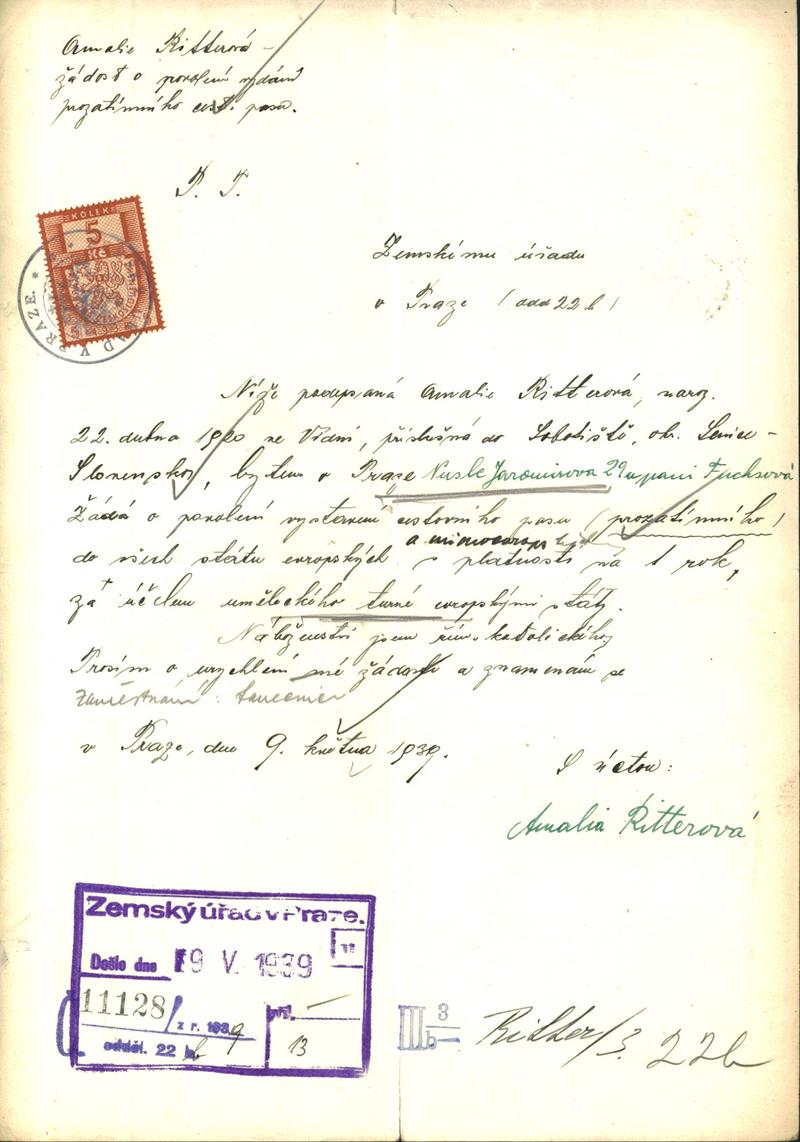 Amalie Ritterová –
žádost o povolení vydání
prozatímního cest. pasu.
P. T.
KOLEK
5
Kč
V PRAZE.
Zemskému úřadu
v Praze (odd 22 b)
Níže podepsaná Amalie Ritterová, naroz.
22. dubna 1920 ve Vídni, příslušná do Sobotiště, okr. Senice –
Slovensko, bytem v Praze Nusle Jaromirova 29 u pani Fuchsová
Žádá o povolení vystavení cestovního pasu (prozatímního)
a mimoevrop
do všech státu evropských s platností na 1 rok,
za účelem uměleckého turné evropskými státy.
Náboženství jsem řím. katolického
Prosím o urychlení mé žádosti a znamenám se
Zaměstnání: tanečnice
v Praze, dne 9. května 1939.
S úctou:
Amalia Ritterová
Zemský úřad v Praze.
Došlo dne 19 V. 1939
11128/ z r. 1939
příl. –
odděl. 22 b 9
13
III 3
b –
Ritter/3. 22b